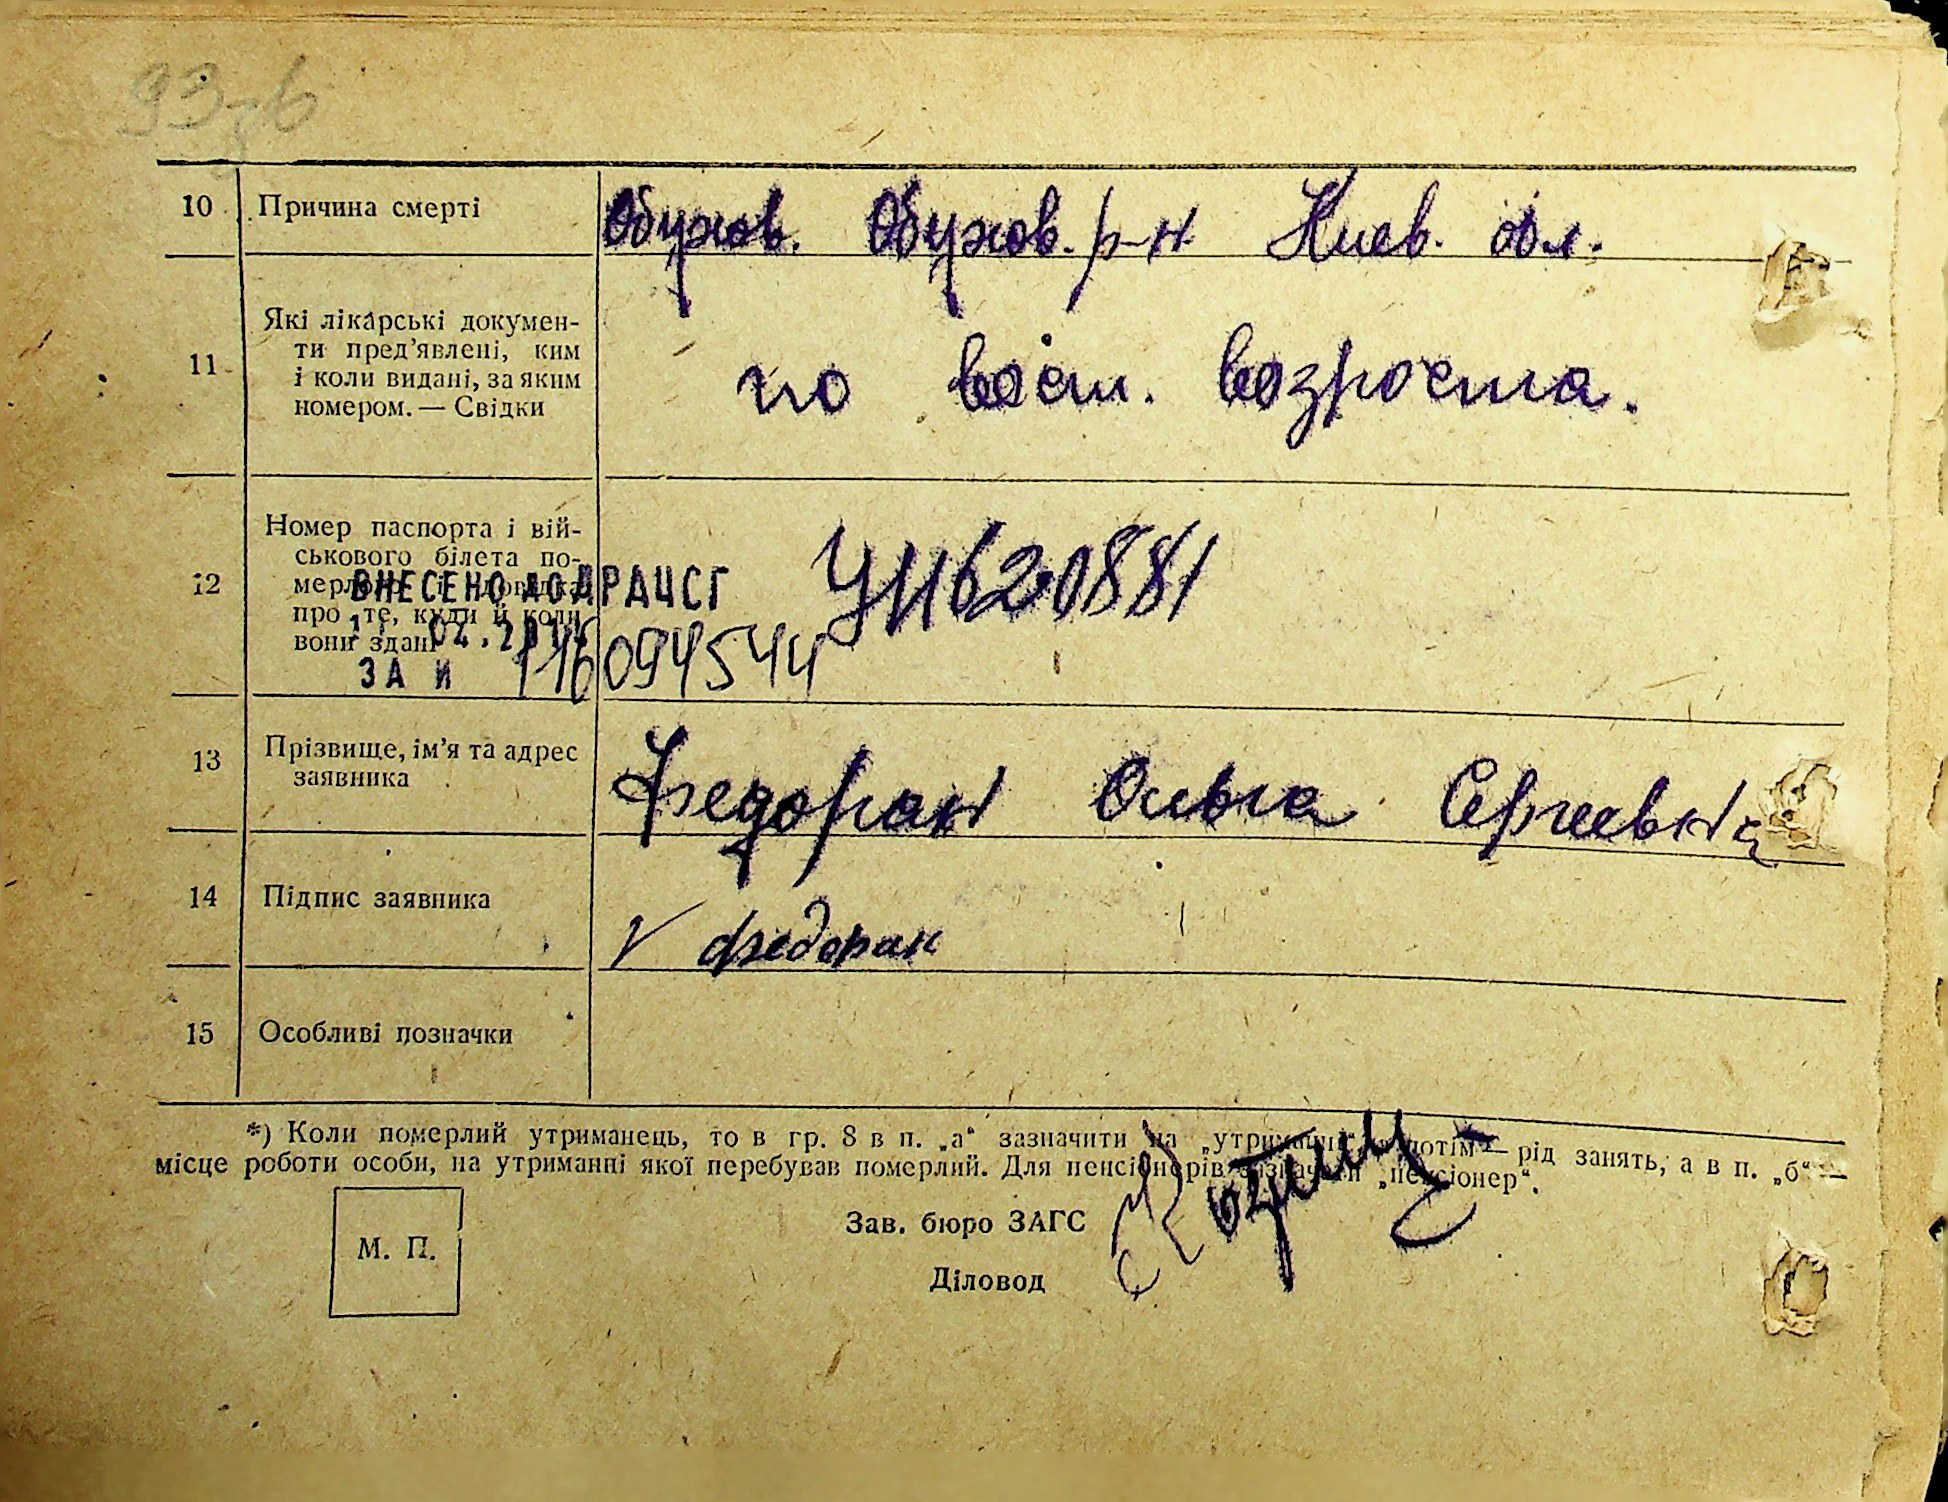 10 Причина смерті Обухов. Обухов. р-н Киев. обл.
11 Які лікарські докумен-
ти пред'явлені, ким
і коли видані, за яким
номером. — Свідки
по возрости.
12 Номер паспорта і вій-
ськового білета по-
про те, куди й коли
вони здані
ВНЕСЕНО ДО ДРАЦСГ
ЗА И 116094544
620881
13 Прізвище, ім'я та адрес
заявника
Федоран Ольга Сергеевна
14 Підпис заявника V Федоран
15 Особливі позначки
*) Коли померлий утриманець, то в гр. 8 в п. „а“ зазначити на потім — рід занять, а в п. „б“ —
місце роботи особи, на утриманні якої перебував померлий. Для пенсіонерів зазначати „пенсіонер“.
Зав. бюро ЗАГС
М. П.
Діловод